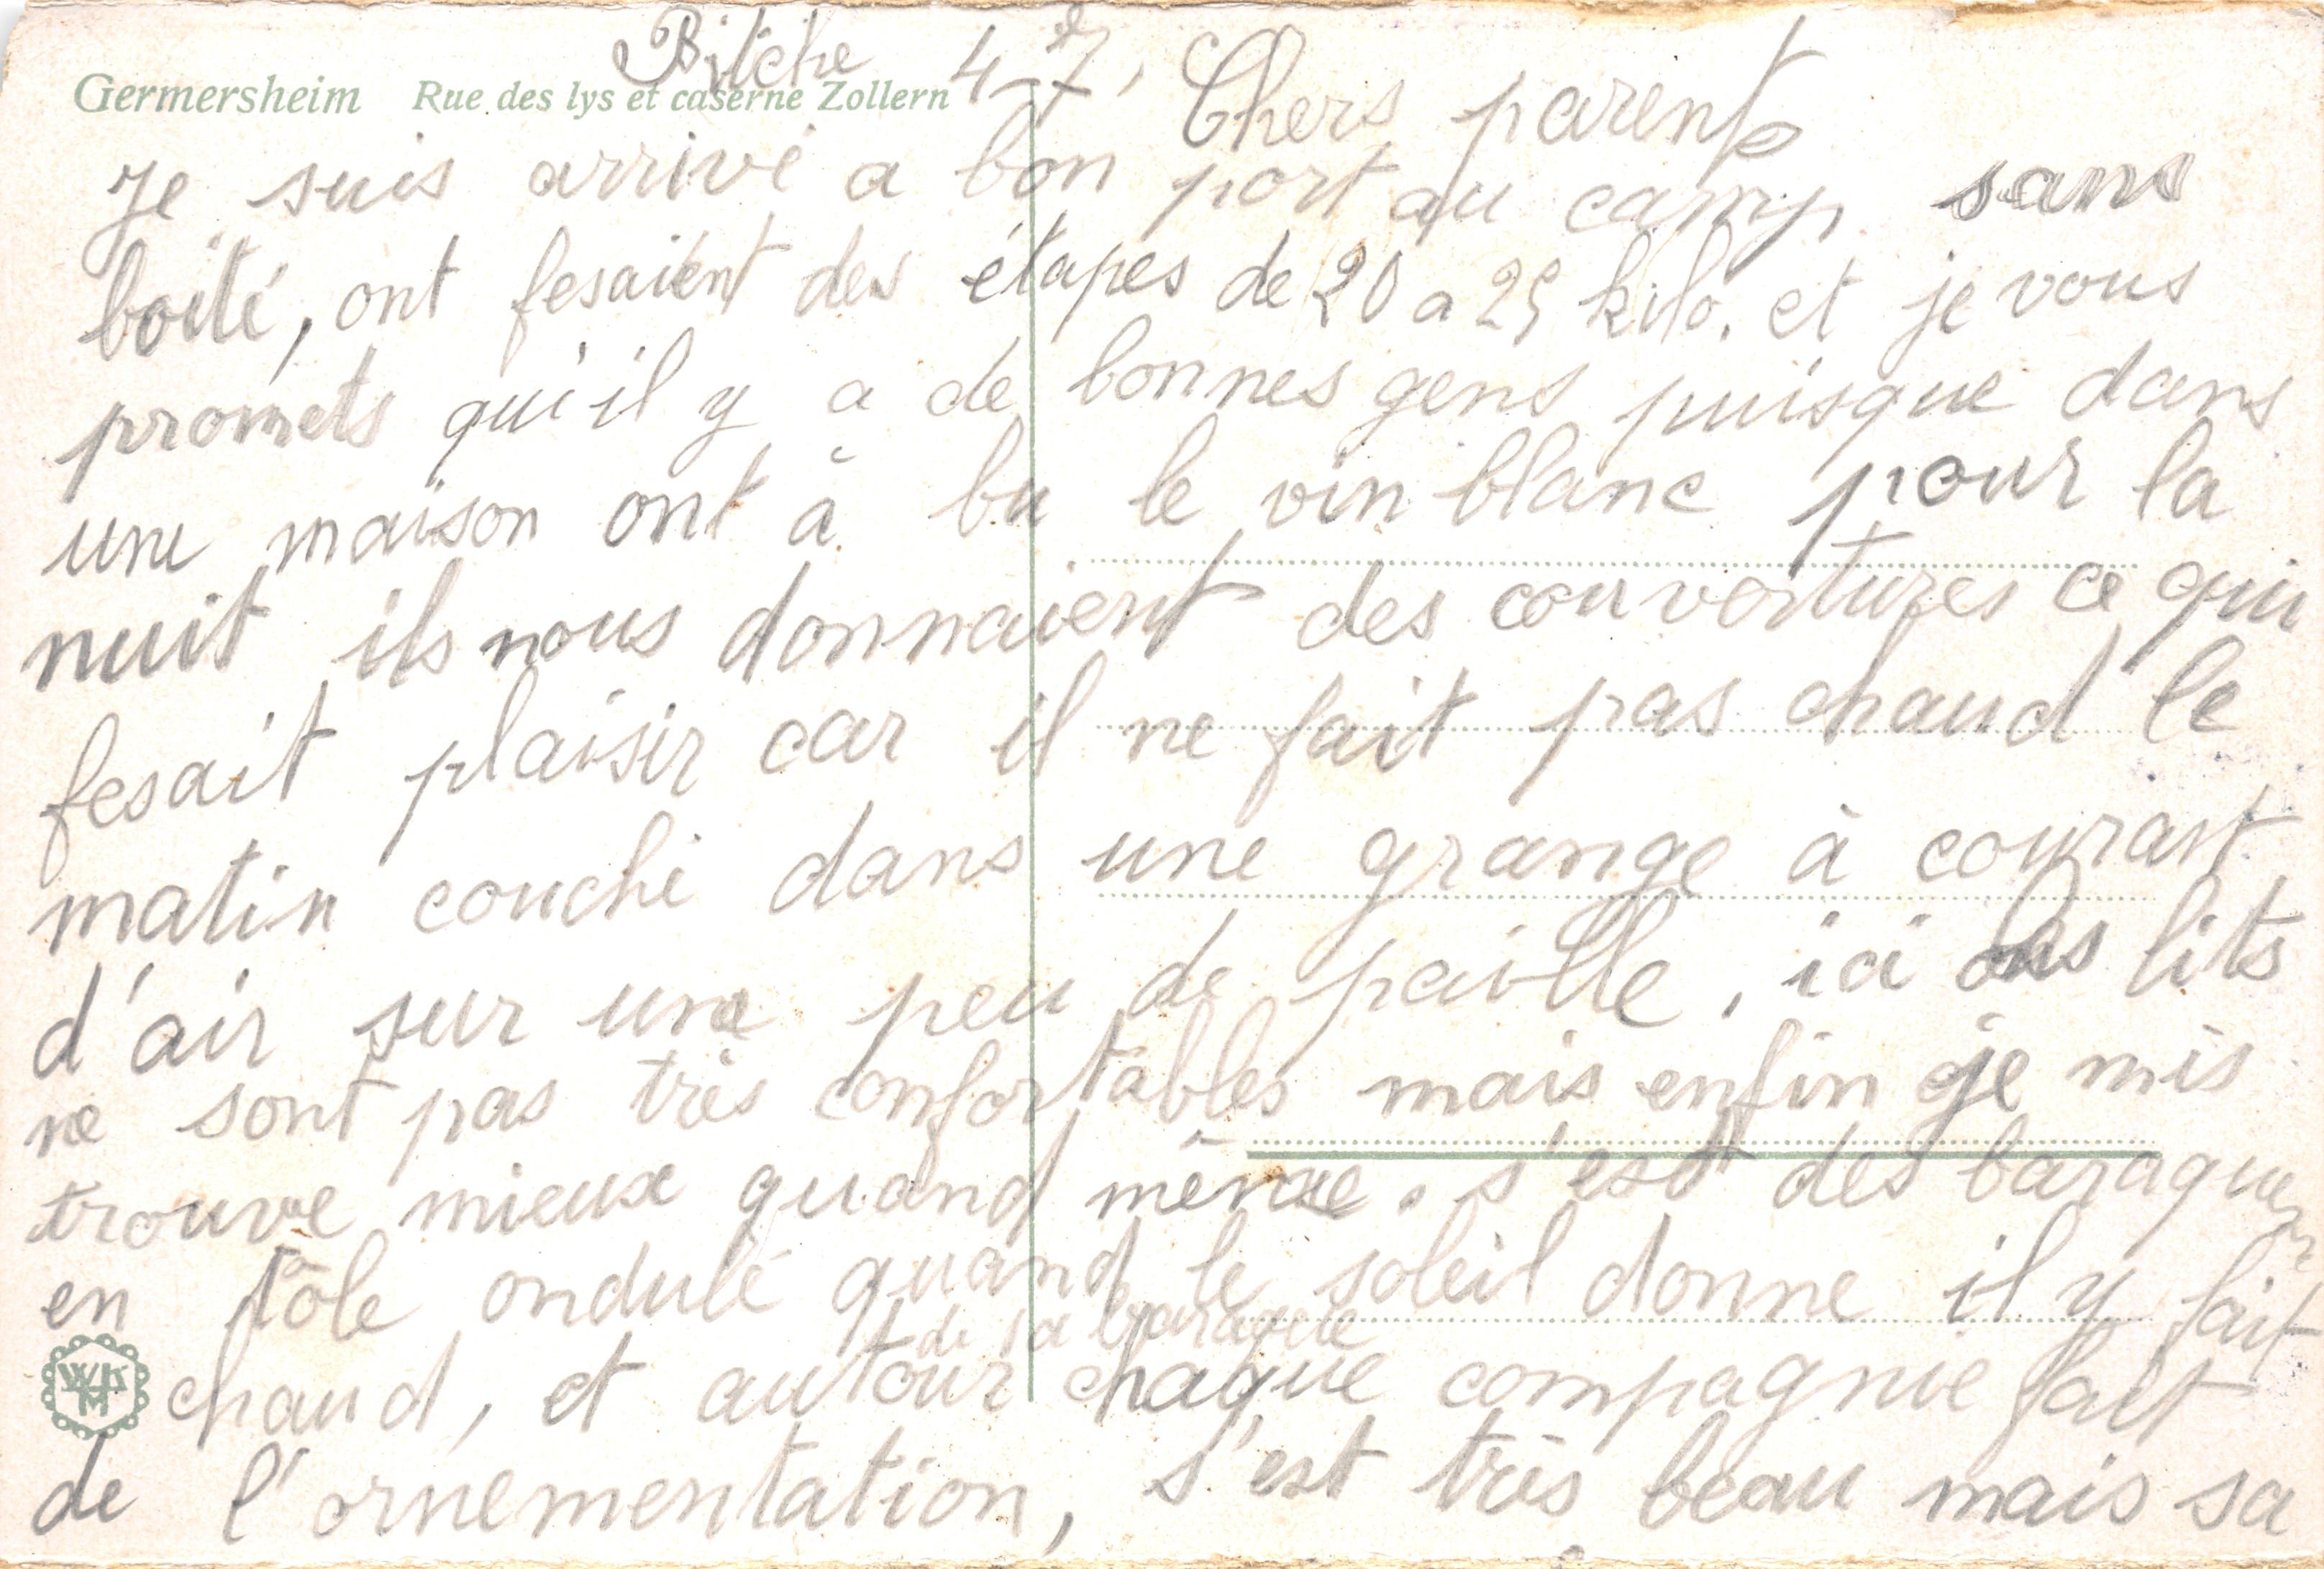 Bitche 4-7,
Germersheim Rue des lys et caserne Zollern
Chers parents
Je suis arrivé a bon port au camp sans
boité, ont fesaient des étapes de 20 a 25 kilo. et je vous
promets qu'il y a de bonnes gens puisque dans
une maison ont à bu le vin blanc pour la
nuit ils nous donnaient des couvertures ce qui
fesait plaisir car il ne fait pas chaud le
matin couché dans une grange à courant
d'air sur une peu de paille, ici les lits
ne sont pas très confortables mais enfin je mis
trouve mieux quand même. s'est des baraques
en tôle ondulé quand le soleil donne il y fait
de sa baraque
chaud, et autour chaque compagnie fait
de l'ornementation, s'est très beau mais sa
WKM